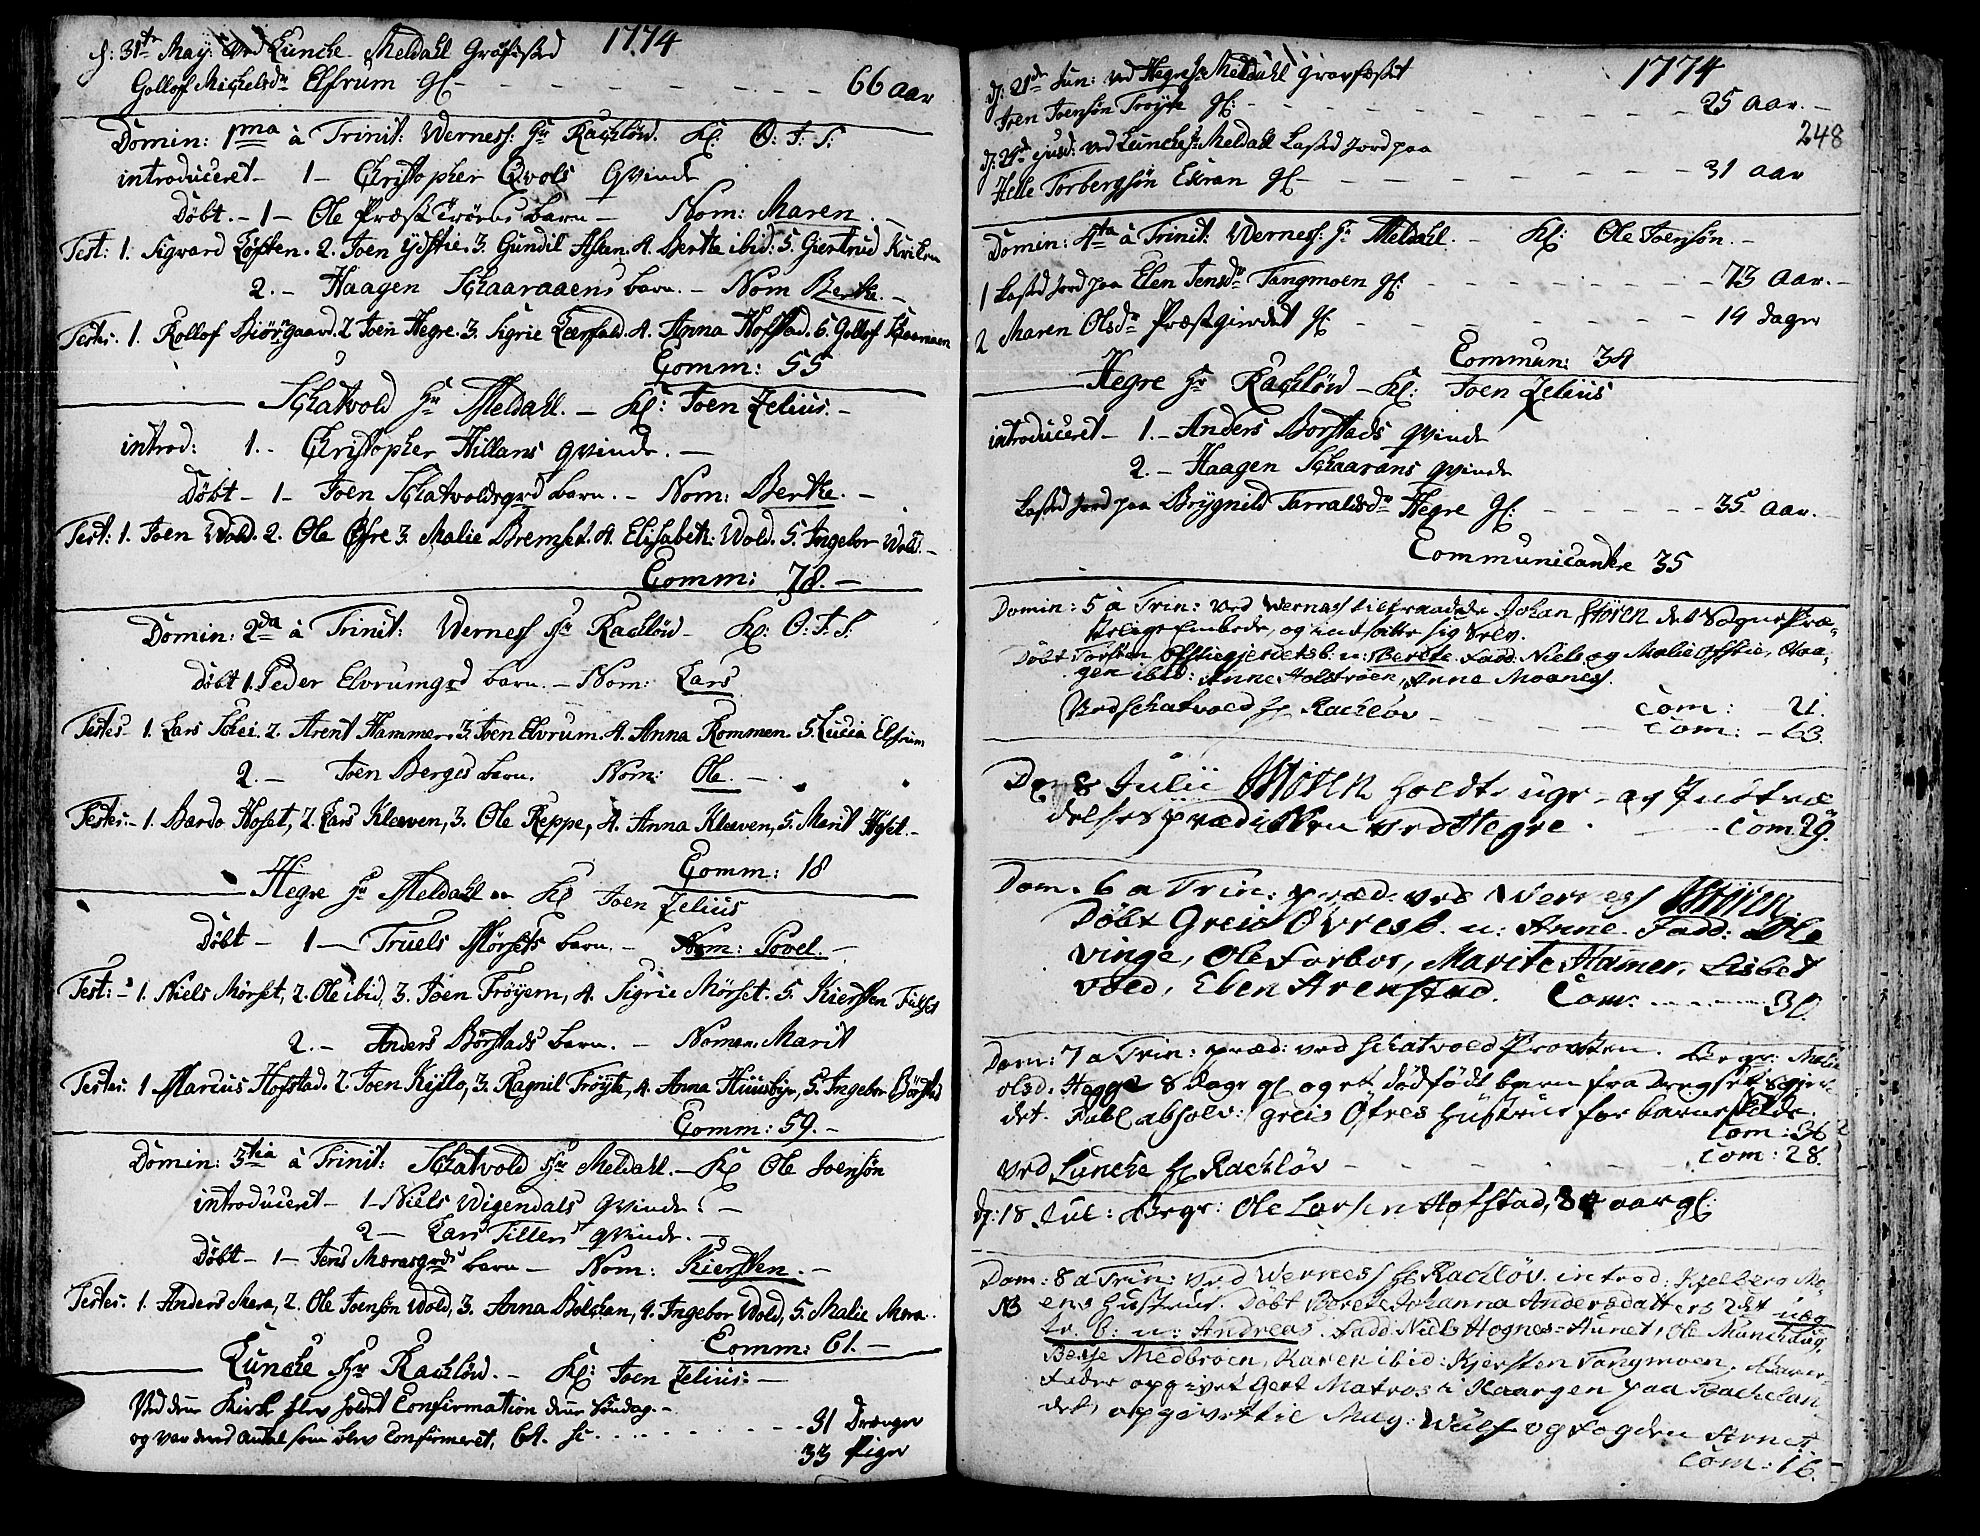 d: 31te May. Ved Luncke Meldahl Gröfested 1774
Gollof Michelsdr Elfrum gl - - - 66 aar
Domin: 1ma à Trinit: Wernes: Hr Rachlöw. Kl: O. J. S.
introduceret - 1 - Christopher Qvols Qvinde
Döbt. - 1 - Ole Præst barn - Nom: Maren. -
Test: 1. Sigvard Löften. 2. Joen Ydstie. 3. Gundil Aasan. 4. Berte ibid. 5. Giertrud
2. - Haagen Schaaraaens barn. - Nom Berte. -
Testes: 1. Rollof Biörngaard. 2 Joen Hegre. 3. Sigrie Leerfald. 4. Anna Hofstad. 5 Gollof
Comm: 55
Schatvold Hr Meldahl. - Kl: Joen Zelius. -
introd: 1. - Christopher Hillans qvinde. -
Döbt - 1 - Joen Schatvoldsgrd barn. - Nom: Berthe. -
Test: 1. Joen Wold. 2. Ole Öfre 3. Malie Bremset. 4. Elisabeth: Wold. 5. Ingebor Wold. -
Comm: 78. -
Domin: 2da à Trinit: Wernes Hr Rachlöw - Kl: O. J. S.
döbt 1. Peder Elvrumgrd barn. - Nom: Lars
Testes - 1. Lars Schei. 2. Arent Hammer. 3. Joen Elvrum. 4. Anna Kommen. 5. Lucia Elfrum
2. - Joen Berges barn. Nom: Ole. -
Testes: - 1. Bardo Hoset, 2. Lars Kleeven, 3. Ole Reppe, 4. Anna Kleeven, 5. Marit Hoset. -
Comm: 18
Hegre Hr Meldahl Kl Joen Zelius
Döbt - 1 - Truels Mörsets barn. - Nom: Povel. -
Test: - 1. Niels Mörset, 2. Ole ibid, 3. Joen Tröyern, 4. Sigrie Mörset. 5. Kiersten
2. - Anders Börstads barn. - Nomen. Marit
Testes: 1. Marcus Hofstad. 2. Joen 3. Ragnil Tröyte, 4. Anna Huusbye, 5. Ingebor Börstad
Comm: 59. -
Domin: 3tia à Trinit: Schatvold Hr Meldahl. - Kl Ole Joensön
introduceret - 1 - Niels Wigendals qvinde: -
2 - Lars Tillers qvinde. -
Döbt - 1 - Jens Merasgrds barn - Nom: Kiersten. -
Testes: 1. Anders Mera, 2. Ole Joensön Wold, 3. Anna Bolckan, 4. Ingebor Wold, 5. Malie Mera.
Comm: 61. -
Luncke Hr Rachlöw. - Kl: Joen Zelius: -
Ved denne Kirke blev holdet Confirmation denne Söndag. -
og var deres antal som blev Confirmeret, 64. - - - 31 Drenger
33 Piger
d: 21de Jun: ved Hegre Hr Meldahl Gravfestet 1774
Iven Joensön Tröyte gl: - - - 25 aar. -
248
d: 24de ejusd: ved Luncke Hr Meldahl Kasted Jord paa
Helle Torbergsön Ekran gl - - - 31 aar
Domin: 4ta à Trinit: Wernes: Hr Meldahl. - Kl: Ole Joensön. -
1 Kasted Jord paa Elen Jensdr Tangmoen gl: - - - 73 aar. -
2 Maren Olsdr Præstgierdet gl - - - 19 dage
Commun: 34
Hegre Hr Rachlöw - Kl: Joen Zelius
introduceret - 1. - Anders Borstads qvinde
2. - Haagen Schaarans qvinde
Kasted Jord paa Brygnild Tarraldsdr Hegre gl: - - - 35 aar.
Communicantre 35
Domin: 5 à Trin: Ved Wernes tiltraadde Johan Stören det Sogne Præ-
stelige Embede, og indsatte sig selv.
Döbt Torsten Ofstiegierdets b. n: Berete. Fadd: Niels og Malie Ofstie, Haa-
gen ibid: Anne Holstrøen, Anne Moanes.
com: - 21.
Ved Schatvold Hr Rachlöv - - - Com: - 63.
D. 8 Julii Stören holdt uge- og Indtræ
delsesprædicken ved Hegre. - Com. 29.
Dom. 6 a Trin: præd. ved Wernes Stören
Döbt Greis Övres b. n: Anne. Fadd: Ole
vinge, Ole Forbor, Marite Hamer, Lisbet
voed, Eben Arenstad. Com: - 30.
Dom: 7 a Trin: præd: ved Schatvoed Provsten. Begr: Malie
olsd. Hegge 8 dage gl og et dödfödt barn fra
det. Publ. absolv: Greis Öfres Hustrue for
Com: 36
Ved Luncke Hr Rachlöv - - - Com: 28.
d: 18 Jul: Begr: Ole Larsen Hofstad, 84 aar gl:
Dom: 8 a Trin: ved Wernes Hr Rachlöv. introd: Kjelberg Mo-
NB ens Hustrue. Döbt Berete Johanna Andersdatters 2det uæg
te b. n: Andreas. Fadd: Niels Hognes-Aunet, Ole Munchaug,
Berse Medbröen, Karen ibid: Kjersten Tangmoen. Barne-
Fader opgivet Gert Matros i Kaargen paa Bachelan-
det, opgivet til Mag: Wulf og Fogden Arnet
Com: 16.